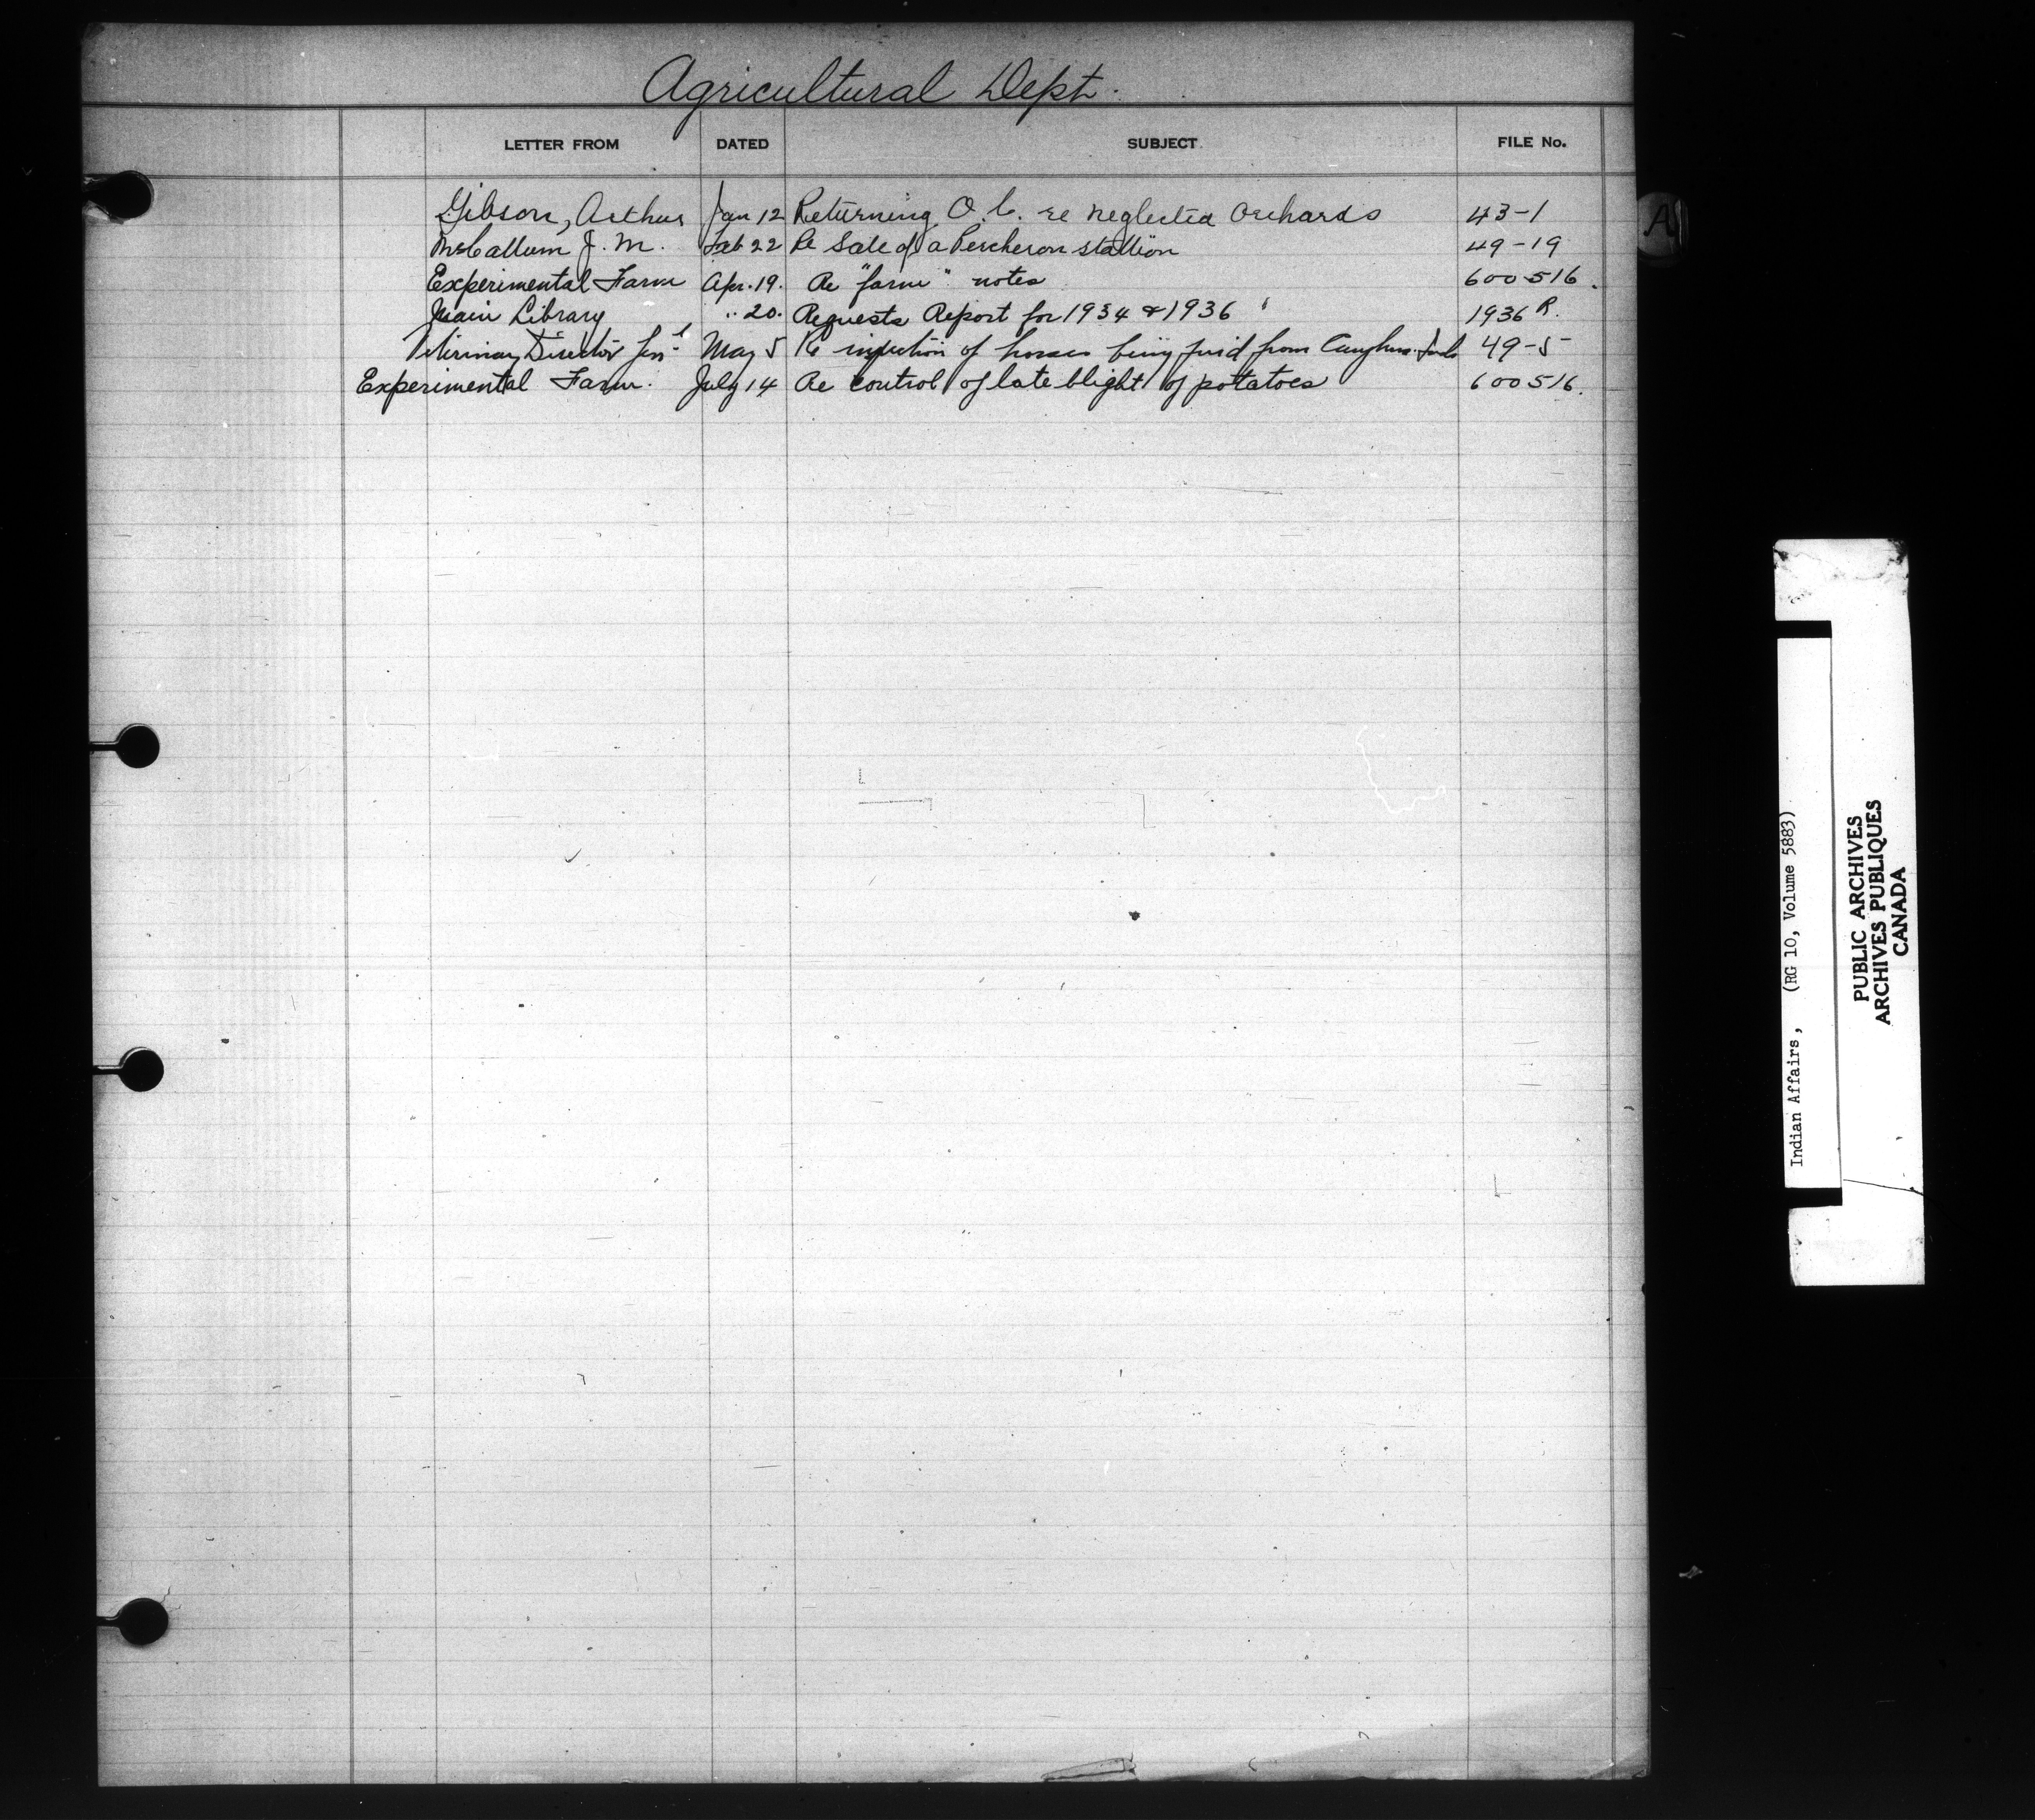 Agricultural Dept.
LETTER FROM DATED SUBJECT FILE No.
Gibson, Arthur Jan 12 Returning O.C. re neglected orchards 43-1
McCallum J. M. Feb 22 Re Sale of a Percheron stallion 49-19
Experimental Farm Apr. 19. Re "farm" notes 600516.
Main Library " 20. Requests Report for 1934 & 1936 1936 R.
Veterinary Director Gen'l May 5 Re inspection of horses being paid from Caughna. funds 49-5
Experimental Farm. July 14 Re control of late blight of potatoes 600516.
A
Indian Affairs, (RG 10, Volume 5883)
PUBLIC ARCHIVES
ARCHIVES PUBLIQUES
CANADA